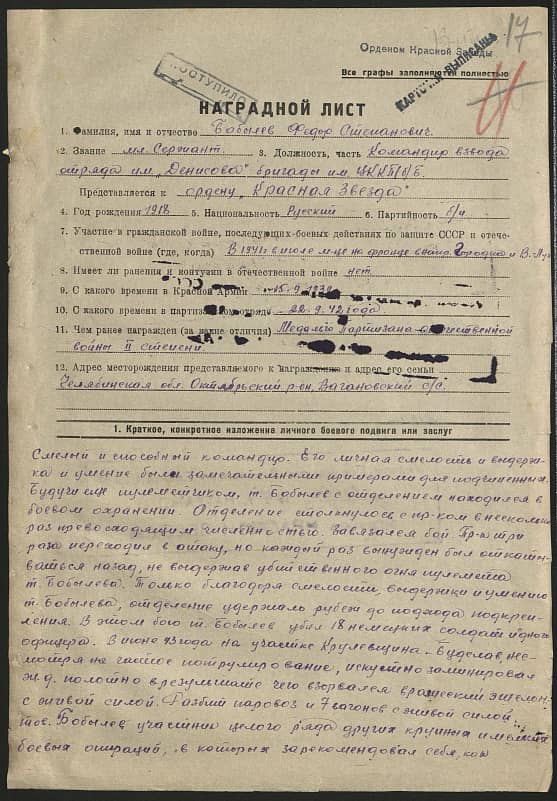 17
Орденом Красной Звезды
ПОСТУПИЛО
Все графы заполняются полностью
КАРТОЧКИ ВЫПИСАНЫ
НАГРАДНОЙ ЛИСТ
1. Фамилия, имя и отчество Бобылев Федор Степанович.
2. Звание мл. Сержант. 3. Должность, часть Командир взвода
отряда им. „Денисова" бригады им. ЦК КП/б/Б.
Представляется к ордену „Красная Звезда"
4. Год рождения 1918 5. Национальность Русский 6. Партийность б/п
7. Участие в гражданской войне, последующих боевых действиях по защите СССР и отече-
ственной войне (где, когда) В 1941г. в июле м-це на фронте Городка и В-Лу
8. Имеет ли ранения и контузии в отечественной войне нет.
9. С какого времени в Красной Армии 15.9.1938
10. С какого времени в партизанском отряде 22.9.42 года
11. Чем ранее награжден (за какие отличия) Медалью Партизана отечественной
войны II степени.
12. Адрес месторождения представляемого к награждению и адрес его семьи
Челябинская обл. Октябрьский р-он, Вагановский с/с.
1. Краткое, конкретное изложение личного боевого подвига или заслуг
Смелый и способный командир. Его личная смелость и выдерж-
ка и умение были замечательными примерами для подчиненных.
Будучи еще пулеметчиком, т. Бобылев с отделением находился в
боевом охранении. Отделение столкнулось с пр-ком в несколько
раз превосходящим численностью. Завязался бой Пр-к три
раза переходил в атаку, но каждый раз вынужден был откаты-
ваться назад, не выдержав убийственного огня пулемета
т. Бобылева. Только благодаря смелости, выдержки и умению
т. Бобылева, отделение удержало рубеж до подхода подкреп-
ления. В этом бою т. Бобылев убил 18 немецких солдат и одного
офицера. В июне 43 года на участке Крулевщина-Будслав, не-
смотря на частое патрулирование, искустно заминировал
ж.д. полотно в результате чего взорвался вражеский эшелон
с живой силой. Разбит паровоз и 7 вагонов с живой силой.
тов. Бобылев участник целого ряда других крупных и мелких
боевых операций, в которых зарекомендовал себя, как